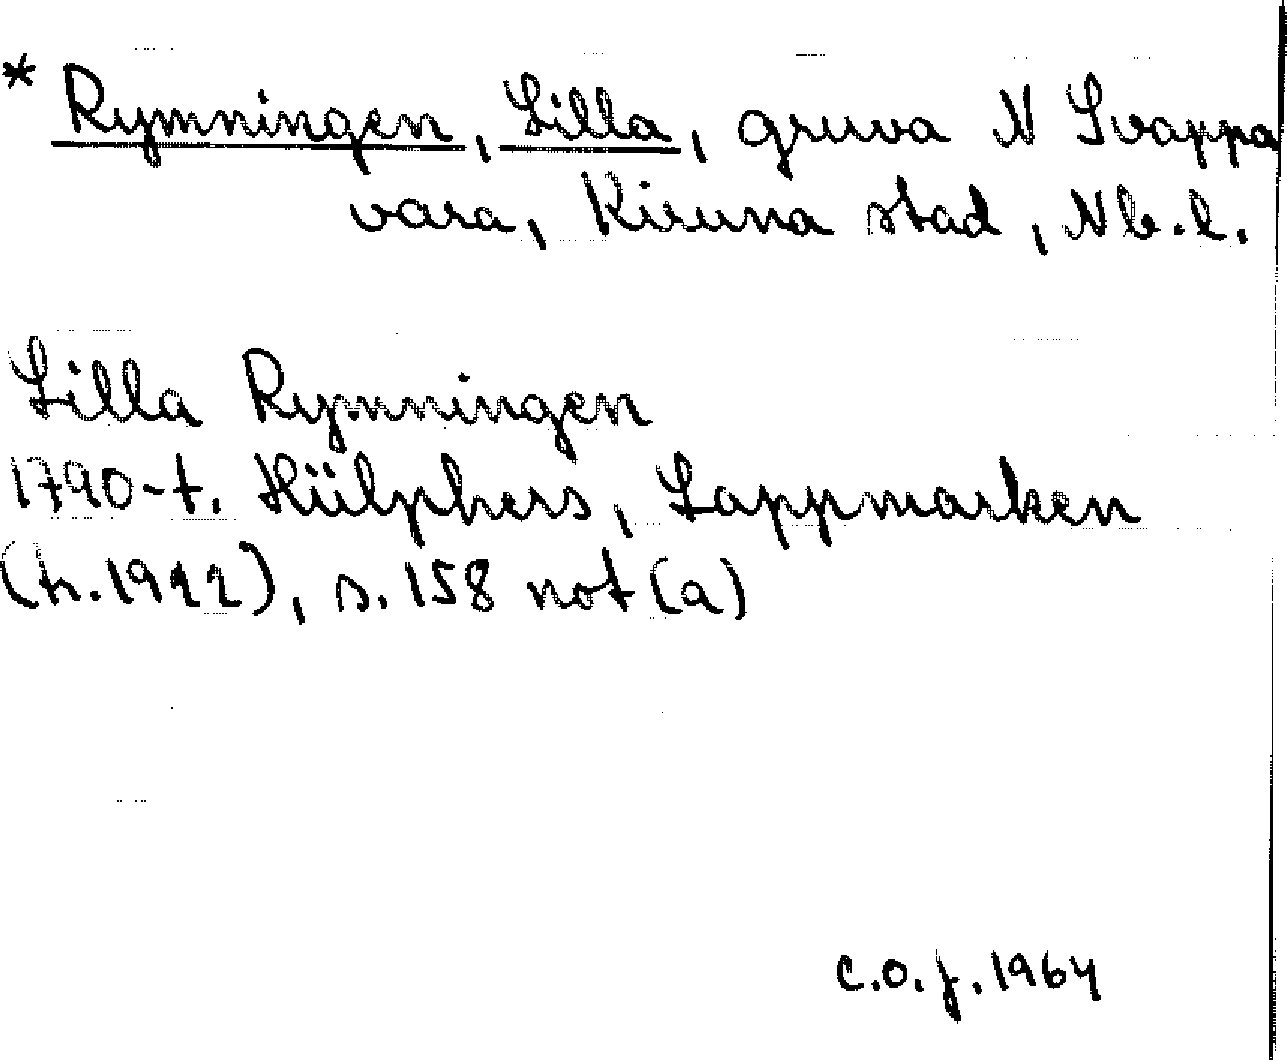 * Rymningen, Lilla, gruva N Svappa
vara, Kiruna stad, Nb.l.
Lilla Rymningen
1790-t. Hülphers, Lappmarken
(tr.1922), s.158 not(a)
C.O.J. 1964